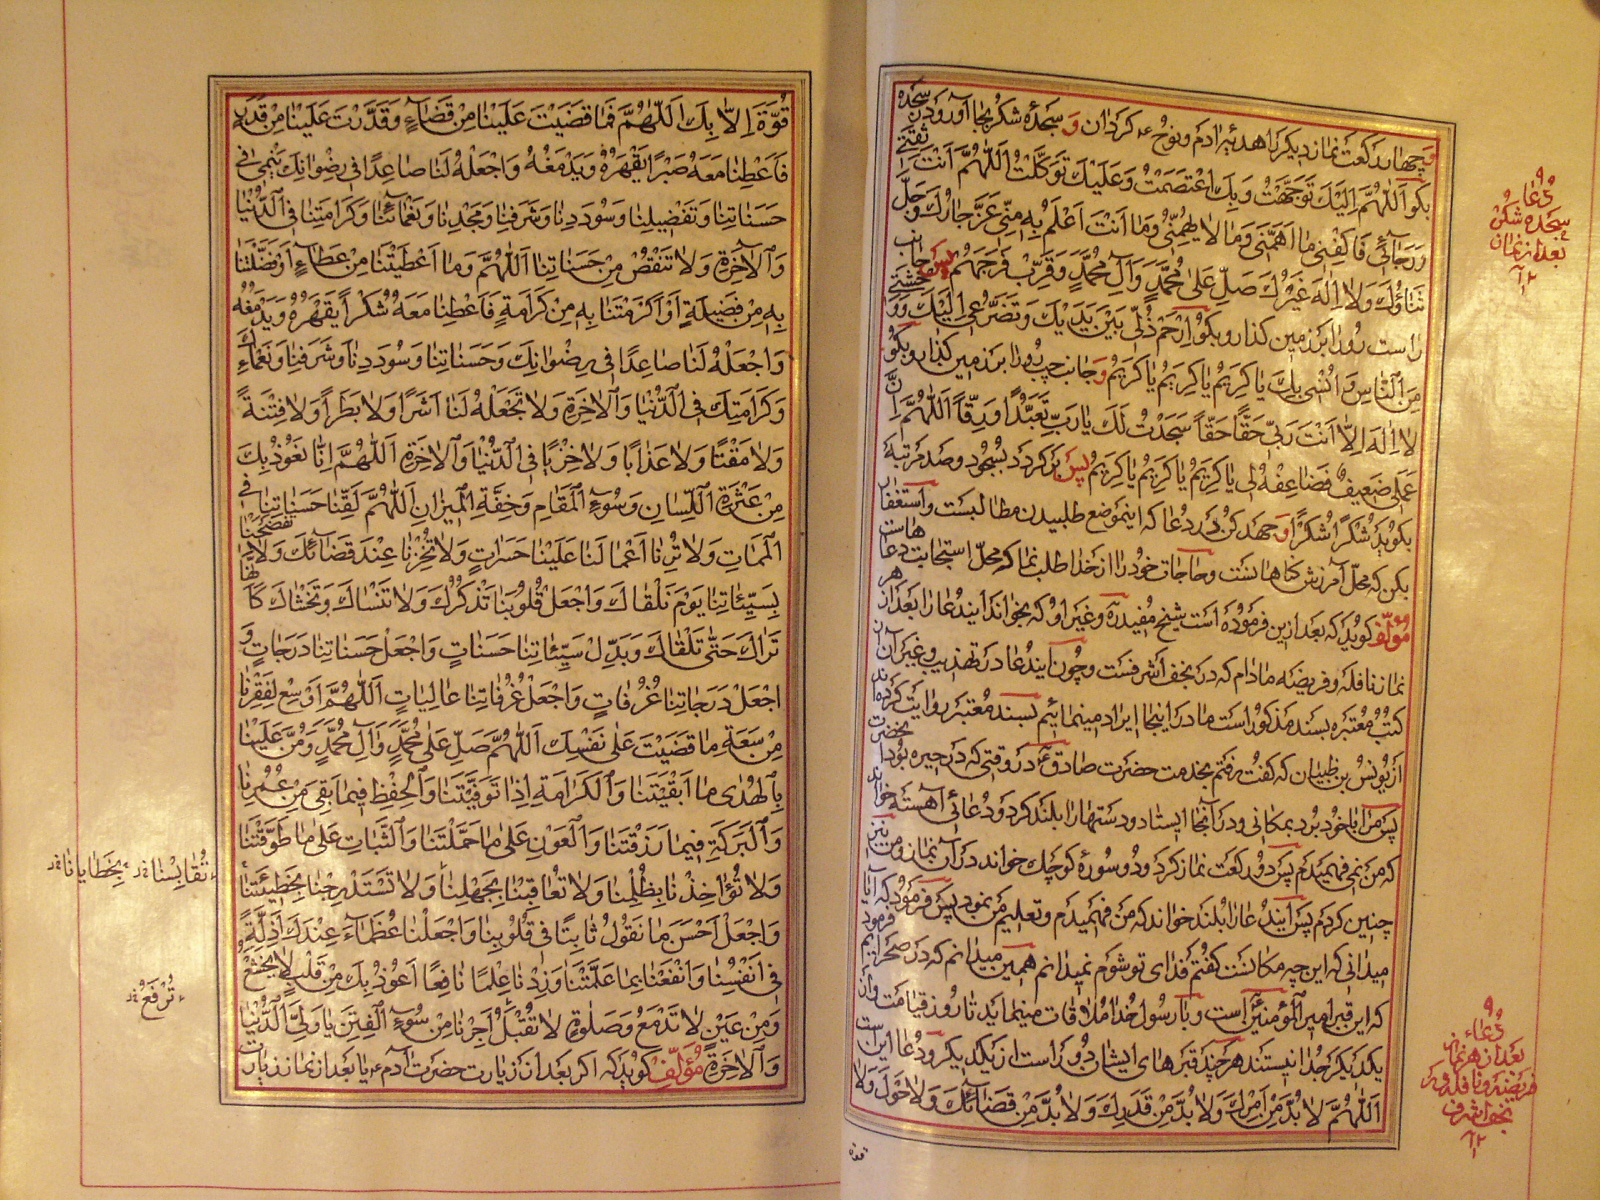 وچهار رکعت نماز دیگر را هدیه آدم و نوح ع کردان و سجدهٔ شکر بجا آور و در سجده
بکو اَللّهُمَّ اِلَیْکَ تَوَجَّهْتُ وَبِکَ اعْتَصَمْتُ وَعَلَیْکَ تَوَکَّلْتُ اَللّهُمَّ اَنْتَ ثِقَتی
وَرَجائی فَاکْفِنی ما اَهَمَّنی وَما لا یُهِمُّنی وَما اَنْتَ اَعْلَمُ بِهِ مِنّی عَزَّ جارُکَ وَجَلَّ
ثَناؤُکَ وَلا اِلهَ غَیْرُکَ صَلِّ عَلی مُحَمَّدٍ وَآلِ مُحَمَّدٍ وَقَرِّبْ فَرَجَهُمْ پس جانب
راست رو را بر زمین کذار و بکو اِرْحَمْ ذُلّی بَیْنَ یَدَیْکَ وَتَضَرُّعی اِلَیْکَ وَوَحْشَتی
مِنَ النّاسِ وَاُنْسی بِکَ یا کَریمُ یا کَریمُ یا کَریمُ و جانب چپ رو را بر زمین کذار و بکو
لا اِلهَ اِلاّ اَنْتَ رَبّی حَقّاً حَقّاً سَجَدْتُ لَکَ یا رَبِّ تَعَبُّداً وَرِقّاً اَللّهُمَّ اِنَّ
عَمَلی ضَعیفٌ فَضاعِفْهُ لی یا کَریمُ یا کَریمُ یا کَریمُ پس برکردد بسجود و صد مرتبه
بکوید شُکْراً شُکْراً و جهد کن در دعا که اینموضع طلبیدن مطالبست و استغفار
بکن که محلّ آمرزش کناهانست و حاجات خود را از خدا طلب نما که محلّ استجابت دعاهاست
مؤلّف کوید که بعد ازین فرموده است شیخ مفید ره و غیر او که بخواند ایندعا را بعد از هر
نماز نافله و فریضه مادام که در نجف اشرفست و چون ایندعا در تهذیب و غیر آن از
کتب معتبره بسند مذکور است ما در اینجا ایراد مینمائیم بسند معتبر روایت کرده‌اند
از یونس بن ظبیان که کفت رفتم بخدمت حضرت صادق ع در وقتی که در حیره بود انحضرت
پس مرا با خود برد بمکانی و در آنجا ایستاد و دستها را بلند کرد و دعائی آهسته خواند
که من نمی فهمیدم پس دو رکعت نماز کرد و دو سوره کوچک خواند در آن نماز و من نیز
چنین کردم پس ایندعا را بلند خواند که من فهمیدم و تعلیم من نمود پس فرمود که آیا
میدانی که این چه مکانست کفتم فدای تو شوم نمیدانم همین میدانم که در صحرائیم فرمود
که این قبر امیر المؤمنین است و با رسول خدا ملاقات مینماید تا روز قیامت و از
یکدیکر جدا نیستند هر چند قبرهای ایشان دور است از یکدیکر و دعا این است
اَللّهُمَّ لا بُدَّ مِنْ اَمْرِکَ وَلا بُدَّ مِنْ قَدَرِکَ وَلا بُدَّ مِنْ قَضائِکَ وَلا حَوْلَ وَلا
قوة
دُعای
سجده شکر
بعد از نماز
دُعاء
بعد از هر نماز
فریضه و نافله در
نجف اشرف
قُوَّةَ اِلّا بِكَ اَللّٰهُمَّ فَمٰا قَضَيْتَ عَلَيْنٰا مِنْ قَضٰاءٍ وَقَدَّرْتَ عَلَيْنٰا مِنْ قَدَرٍ
فَاَعْطِنٰا مَعَهُ صَبْرًا يَقْهَرُهُ وَيَدْمَغُهُ وَاجْعَلْهُ لَنٰا صٰاعِدًا فِى رِضْوٰانِكَ يَنْمِى فِى
حَسَنٰاتِنٰا وَتَفْضِيلِنٰا وَسُوْدَدِنٰا وَشَرَفِنٰا وَمَجْدِنٰا وَنَعْمٰائِنٰا وَكَرٰامَتِنٰا فِى الدُّنْيٰا
وَالْآخِرَةِ وَلٰا تَنْقُصْ مِنْ حَسَنٰاتِنٰا اَللّٰهُمَّ وَمٰا اَعْطَيْتَنٰا مِنْ عَطٰاءٍ اَوْ فَضَّلْتَنٰا
بِهِ مِنْ فَضِيلَةٍ اَوْ اَكْرَمْتَنٰا بِهِ مِنْ كَرٰامَةٍ فَاَعْطِنٰا مَعَهُ شُكْراً يَقْهَرُهُ وَيَدْمَغُهُ
وَاجْعَلْهُ لَنٰا صٰاعِدًا فِى رِضْوٰانِكَ وَحَسَنٰاتِنٰا وَسُوْدَدِنٰا وَشَرَفِنٰا وَنَعْمٰاءِكَ
وَكَرٰامَتِكَ فِى الدُّنْيٰا وَالْآخِرَةِ وَلٰا تَجْعَلْهُ لَنٰا اَشَرًا وَلٰا بَطَراً وَلٰا فِتْنَةً
وَلٰا مَقْتًا وَلٰا عَذٰابًا وَلٰا خِزْيًا فِى الدُّنْيٰا وَالْآخِرَةِ اَللّٰهُمَّ اِنّٰا نَعُوذُ بِكَ
مِنْ عَثْرَةِ اللِّسٰانِ وَسُوءِ الْمَقٰامِ وَخِفَّةِ الْمِيزٰانِ اَللّٰهُمَّ لَقِّنٰا حَسَنٰاتِنٰا فِى
الْمَمٰاتِ وَلٰا تُرِنٰا اَعْمٰالَنٰا عَلَيْنٰا حَسَرٰاتٍ وَلٰا تُخْزِنٰا عِنْدَ قَضٰائِكَ وَلٰا تَفْضَحْنٰا
بِسَيِّئٰاتِنٰا يَوْمَ نَلْقٰاكَ وَاجْعَلْ قُلُوبَنٰا تَذْكُرُكَ وَلٰا تَنْسٰاكَ وَتَخْشٰاكَ كَاَنَّهٰا
تَرٰاكَ حَتّٰى تَلْقٰاكَ وَبَدِّلْ سَيِّئٰاتِنٰا حَسَنٰاتٍ وَاجْعَلْ حَسَنٰاتِنٰا دَرَجٰاتٍ وَ
اجْعَلْ دَرَجٰاتِنٰا غُرُفٰاتٍ وَاجْعَلْ غُرُفٰاتِنٰا عٰالِيٰاتٍ اَللّٰهُمَّ اَوْسِعْ لِفَقْرِنٰا
مِنْ سَعَةِ مٰا قَضَيْتَ عَلٰى نَفْسِكَ اَللّٰهُمَّ صَلِّ عَلٰى مُحَمَّدٍ وَآلِ مُحَمَّدٍ وَمُنَّ عَلَيْنٰا
بِالْهُدٰى مٰا اَبْقَيْتَنٰا وَالْكَرٰامَةِ اِذٰا تَوَفَّيْتَنٰا وَالْحِفْظِ فِيمٰا بَقِىَ مِنْ عُمْرِنٰا
وَالْبَرَكَةِ فِيمٰا رَزَقْتَنٰا وَالْعَوْنِ عَلٰى مٰا حَمَّلْتَنٰا وَالثَّبٰاتِ عَلٰى مٰا طَوَّقْتَنٰا
وَلٰا تُؤٰاخِذْنٰا بِظُلْمِنٰا وَلٰا تُعٰاقِبْنٰا بِجَهْلِنٰا وَلٰا تَسْتَدْرِجْنٰا بِخَطِيئَتِنٰا
وَاجْعَلْ اَحْسَنَ مٰا نَقُولُ ثٰابِتًا فِى قُلُوبِنٰا وَاجْعَلْنٰا عُظَمٰاءَ عِنْدَكَ اَذِلَّةً
فِى اَنْفُسِنٰا وَانْفَعْنٰا بِمٰا عَلَّمْتَنٰا وَزِدْنٰا عِلْمًا نٰافِعًا اَعُوذُ بِكَ مِنْ قَلْبٍ لٰا يَخْشَعُ
وَمِنْ عَيْنٍ لٰا تَدْمَعُ وَصَلٰوةٍ لٰا تُقْبَلُ اَجِرْنٰا مِنْ سُوءِ الْفِتَنِ يٰا وَلِىَّ الدُّنْيٰا
وَالْآخِرَةِ مؤلّف کوید که اکر بعد از زیارت حضرت آدم ع یا بعد از نماز زیارت
تُقٰايِسْنٰا بِخَطٰايٰانٰا
تُرْفَعُ